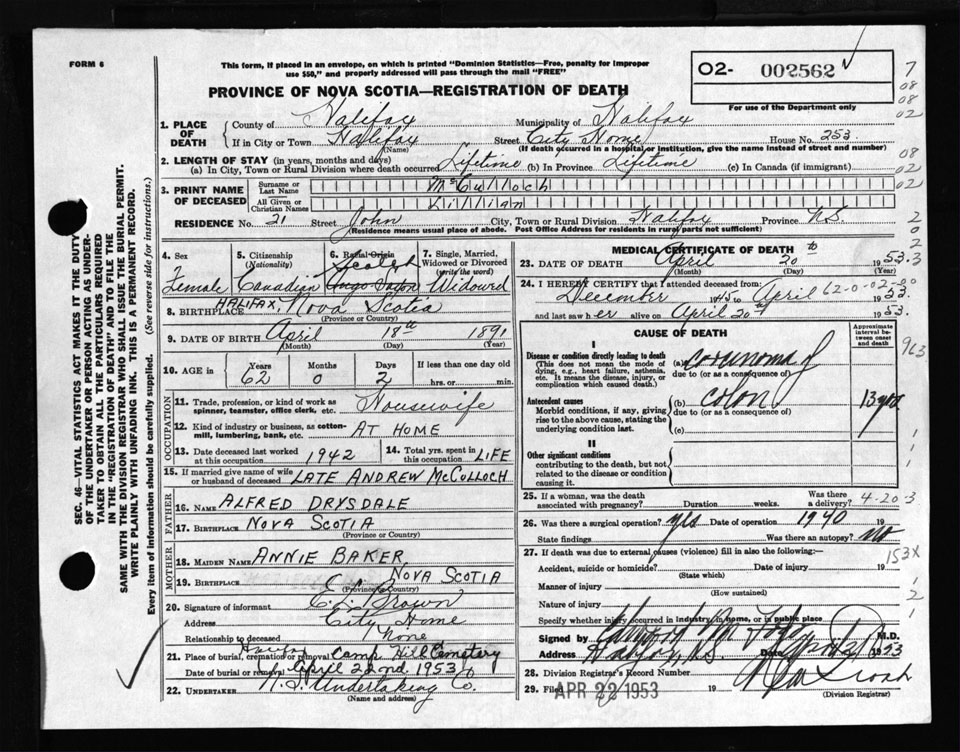 FORM 6
This form, if placed in an envelope, on which is printed "Dominion Statistics—Free, penalty for improper
use $50," and properly addressed will pass through the mail "FREE"
PROVINCE OF NOVA SCOTIA—REGISTRATION OF DEATH
02- 002562
For use of the Department only
7
08
08
02
1. PLACE OF DEATH
County of Halifax Municipality of Halifax
If in City or Town Halifax Street City Home House No. 253
(Name) (If death occurred in a hospital or institution, give the name instead of street and number)
2. LENGTH OF STAY (in years, months and days)
(a) In City, Town or Rural Division where death occurred Lifetime (b) In Province Lifetime (c) In Canada (if immigrant)
08
02
3. PRINT NAME OF DECEASED
Surname or Last Name McCulloch
All Given or Christian Names Lillian
02
RESIDENCE No. 21 Street John City, Town or Rural Division Halifax Province N.S.
(Residence means usual place of abode. Post Office Address for residents in rural parts not sufficient)
2
0
2
3
SEC. 46—VITAL STATISTICS ACT MAKES IT THE DUTY
OF THE UNDERTAKER OR PERSON ACTING AS UNDER-
TAKER TO OBTAIN ALL THE PARTICULARS REQUIRED
IN THE "REGISTRATION OF DEATH" AND TO FILE THE
SAME WITH THE DIVISION REGISTRAR WHO SHALL ISSUE THE BURIAL PERMIT.
WRITE PLAINLY WITH UNFADING INK. THIS IS A PERMANENT RECORD.
Every item of information should be carefully supplied. (See reverse side for instructions.)
4. Sex Female
5. Citizenship (Nationality) Canadian
6. Racial Origin Scotch
7. Single, Married, Widowed or Divorced (write the word) Widowed
8. BIRTHPLACE HALIFAX, Nova Scotia
(Province or Country)
9. DATE OF BIRTH April 18th 1891
(Month) (Day) (Year)
10. AGE in Years 62 Months 0 Days 2 If less than one day old
hrs. or min.
OCCUPATION
11. Trade, profession, or kind of work as
spinner, teamster, office clerk, etc. Housewife
12. Kind of industry or business, as cotton-
mill, lumbering, bank, etc. AT HOME
13. Date deceased last worked at this occupation 1942
14. Total yrs. spent in this occupation LIFE
15. If married give name of wife
or husband of deceased LATE ANDREW McCULLOCH
FATHER
16. NAME ALFRED DRYSDALE
17. BIRTHPLACE NOVA SCOTIA
(Province or Country)
MOTHER
18. MAIDEN NAME ANNIE BAKER
19. BIRTHPLACE NOVA SCOTIA
(Province or Country)
20. Signature of informant Brown
Address City Home
Relationship to deceased None
21. Place of burial, cremation or removal Halifax Camp Hill Cemetery
Date of burial or removal April 22nd 1953
22. UNDERTAKER N.S. Undertaking Co.
(Name and address)
MEDICAL CERTIFICATE OF DEATH
23. DATE OF DEATH April 20th 1953
(Month) (Day) (Year)
24. I HEREBY CERTIFY that I attended deceased from:
December 1945 to April 1953
62-0-02-00
and last saw her alive on April 20th 1953.
CAUSE OF DEATH
Approximate interval between onset and death
963
I
Disease or condition directly leading to death
(This does not mean the mode of
dying, e.g., heart failure, asthenia,
etc. It means the disease, injury, or
complication which caused death.)
(a)
due to (or as a consequence of)
Antecedent causes
Morbid conditions, if any, giving
rise to the above cause, stating the
underlying condition last.
(b) colon 13 yrs
due to (or as a consequence of)
(c)
II
Other significant conditions
contributing to the death, but not
related to the disease or condition
causing it.
1
1
1
25. If a woman, was the death
associated with pregnancy? Duration weeks Was there a delivery?
4-20-3
26. Was there a surgical operation? yes Date of operation 1940 19
State findings Was there an autopsy? No
27. If death was due to external causes (violence) fill in also the following:—
153X
Accident, suicide or homicide? Date of injury 19
(State which)
Manner of injury
(How sustained)
Nature of injury
Specify whether injury occurred in industry, in home, or in public place
1
2
1
Signed by M.D.
Address Halifax, N.S. 1953
28. Division Registrar's Record Number
29. Filed APR 22 1953 19
(Division Registrar)